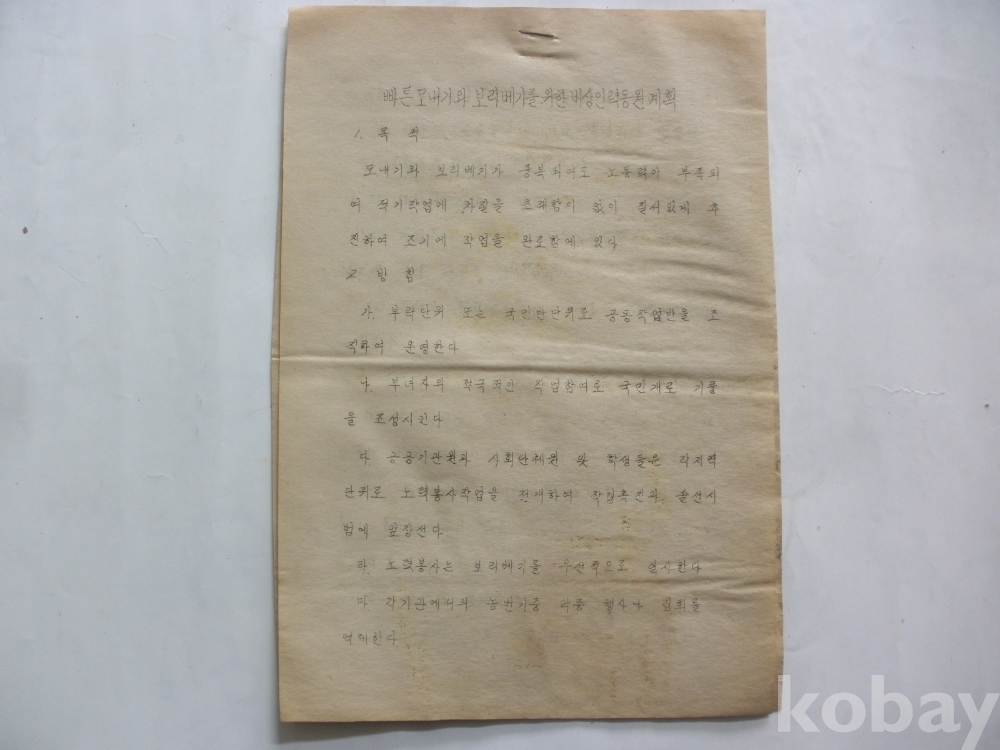 빠른 모내기와 보리베기를 위한 비상인력동원계획
1. 목 적
모내기와 보리베기가 중복되여도 노동력이 부족되
여 적기작업에 차질을 초래함이 없이 질서있게 추
진하여 조기에 작업을 완료함에 있다
2. 방 침
가. 부락단위 또는 국민반단위로 공동작업반을 조
직하여 운영한다
나. 부녀자의 적극적인 작업참여로 국민개로 기풍
을 조성시킨다
다. 공공기관원과 사회단체원 및 학생들은 각지역
단위로 노력봉사작업을 전개하여 작업촉진과 솔선시
범에 앞장선다
라. 노력봉사는 보리베기를 우선적으로 실시한다
마 각기관에서의 농번기중 각종 행사나 집회를
억제한다
-1-
kobay